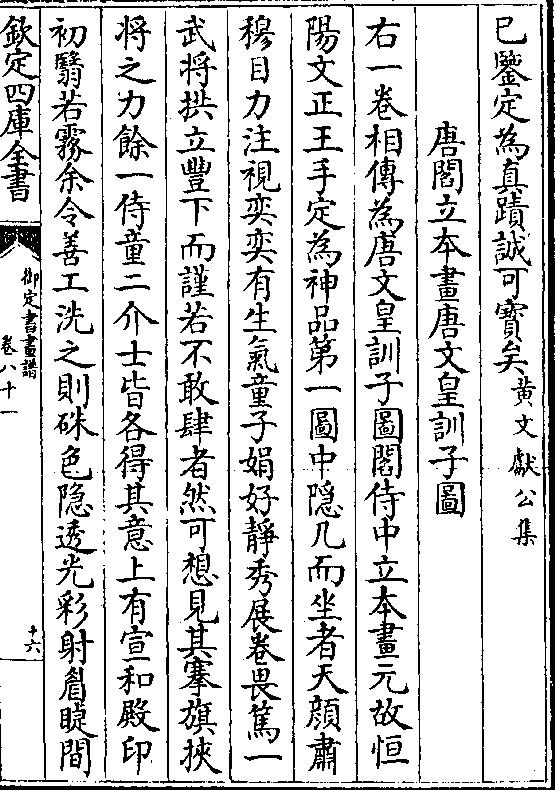 已鑒定為真蹟誠可寶矣黃文獻公集
唐閻立本畫唐文皇訓子圖
右一卷相傳為唐文皇訓子圖閻侍中立本畫元故恒
陽文正王手定為神品第一圖中隱几而坐者天顏肅
穆目力注視奕奕有生氣童子娟好靜秀展卷畏篤一
武將拱立豐下而謹若不敢肆者然可想見其搴旗挾
將之力餘一侍童二介士皆各得其意上有宣和殿印
初翳若霧余令善工洗之則硃色隐透光彩射眉睫間
欽定四庫全書
御定書畫譜
卷八十一
十六